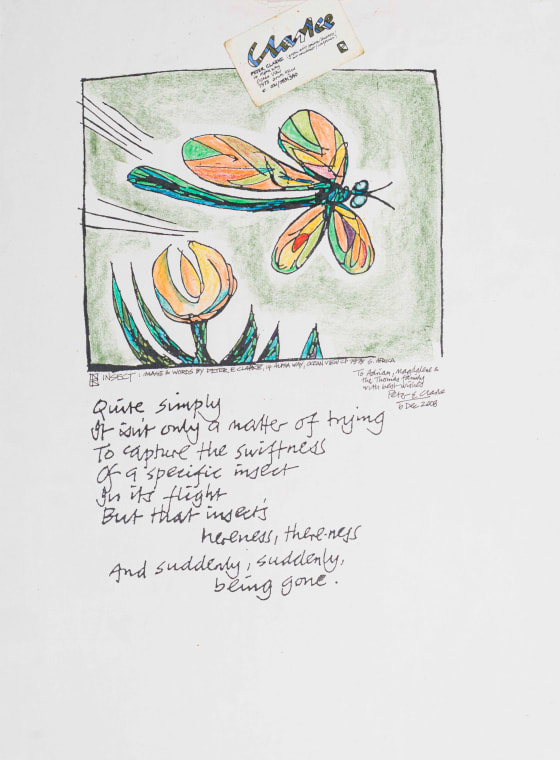 Clarke
PETER CLARKE
INSECT : IMAGE & WORDS BY PETER E CLARKE, 14 ALPHA WAY, OCEAN VIEW CT 7975 S. AFRICA
To Adrian, Magdalene &
the Thomas family
with best wishes
Peter E. Clarke
6 DEC 2008
Quite simply
It isn't only a matter of trying
To capture the swiftness
Of a specific insect
In its flight
But that insect's
hereness, there-ness
And suddenly, suddenly,
being gone.